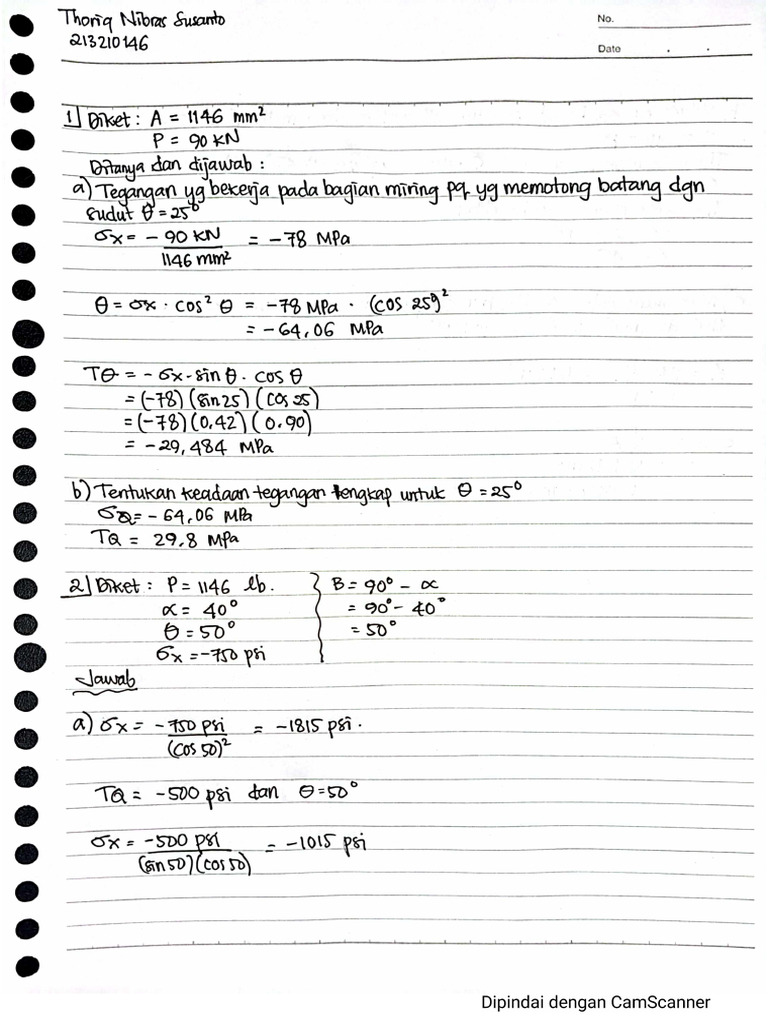 Thoriq Nibras Susanto
213210146
No.
Date . .
1] Diket : A = 1146 mm²
P = 90 KN
Ditanya dan dijawab :
a) Tegangan yg bekerja pada bagian miring pq yg memotong batang dgn
sudut θ = 25°
σx = - 90 KN / 1146 mm² = -78 MPa
θ = σx · cos² θ = -78 MPa · (cos 25°)²
= -64,06 MPa
Tθ = - σx · sin θ . cos θ
= (-78) (sin 25) (cos 25)
= (-78) (0,42) (0.90)
= -29,484 MPa
b) Tentukan keadaan tegangan lengkap untuk θ = 25°
σQ = -64,06 MPa
TQ = 29.8 MPa
2] Diket : P = 1146 lb. } B = 90° - α
α = 40° = 90° - 40°
θ = 50° = 50°
σx = -750 psi
Jawab
a) σx = -750 psi / (cos 50)² = -1815 psi.
TQ = -500 psi dan θ = 50°
σx = -500 psi / (sin 50) (cos 50) = -1015 psi
Dipindai dengan CamScanner